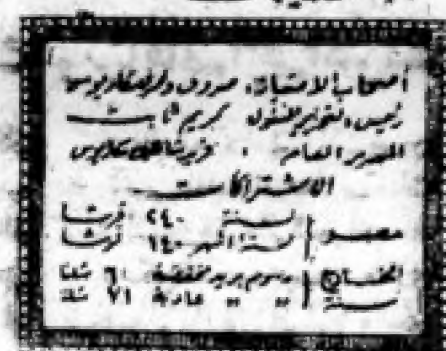 أصحاب الامتياز: صروف ونمر ومكاريوس
رئيس التحرير المسئول كريم ثابت
المدير العام .
الاشتراكات
مصر لسنة ٢٤٠ قرشا
لستة اشهر ١٤٠ قرشا
الخارج رسوم بريد مخفضة ٦٠ شلنا
سنة " " عادية ٧١ شلنا